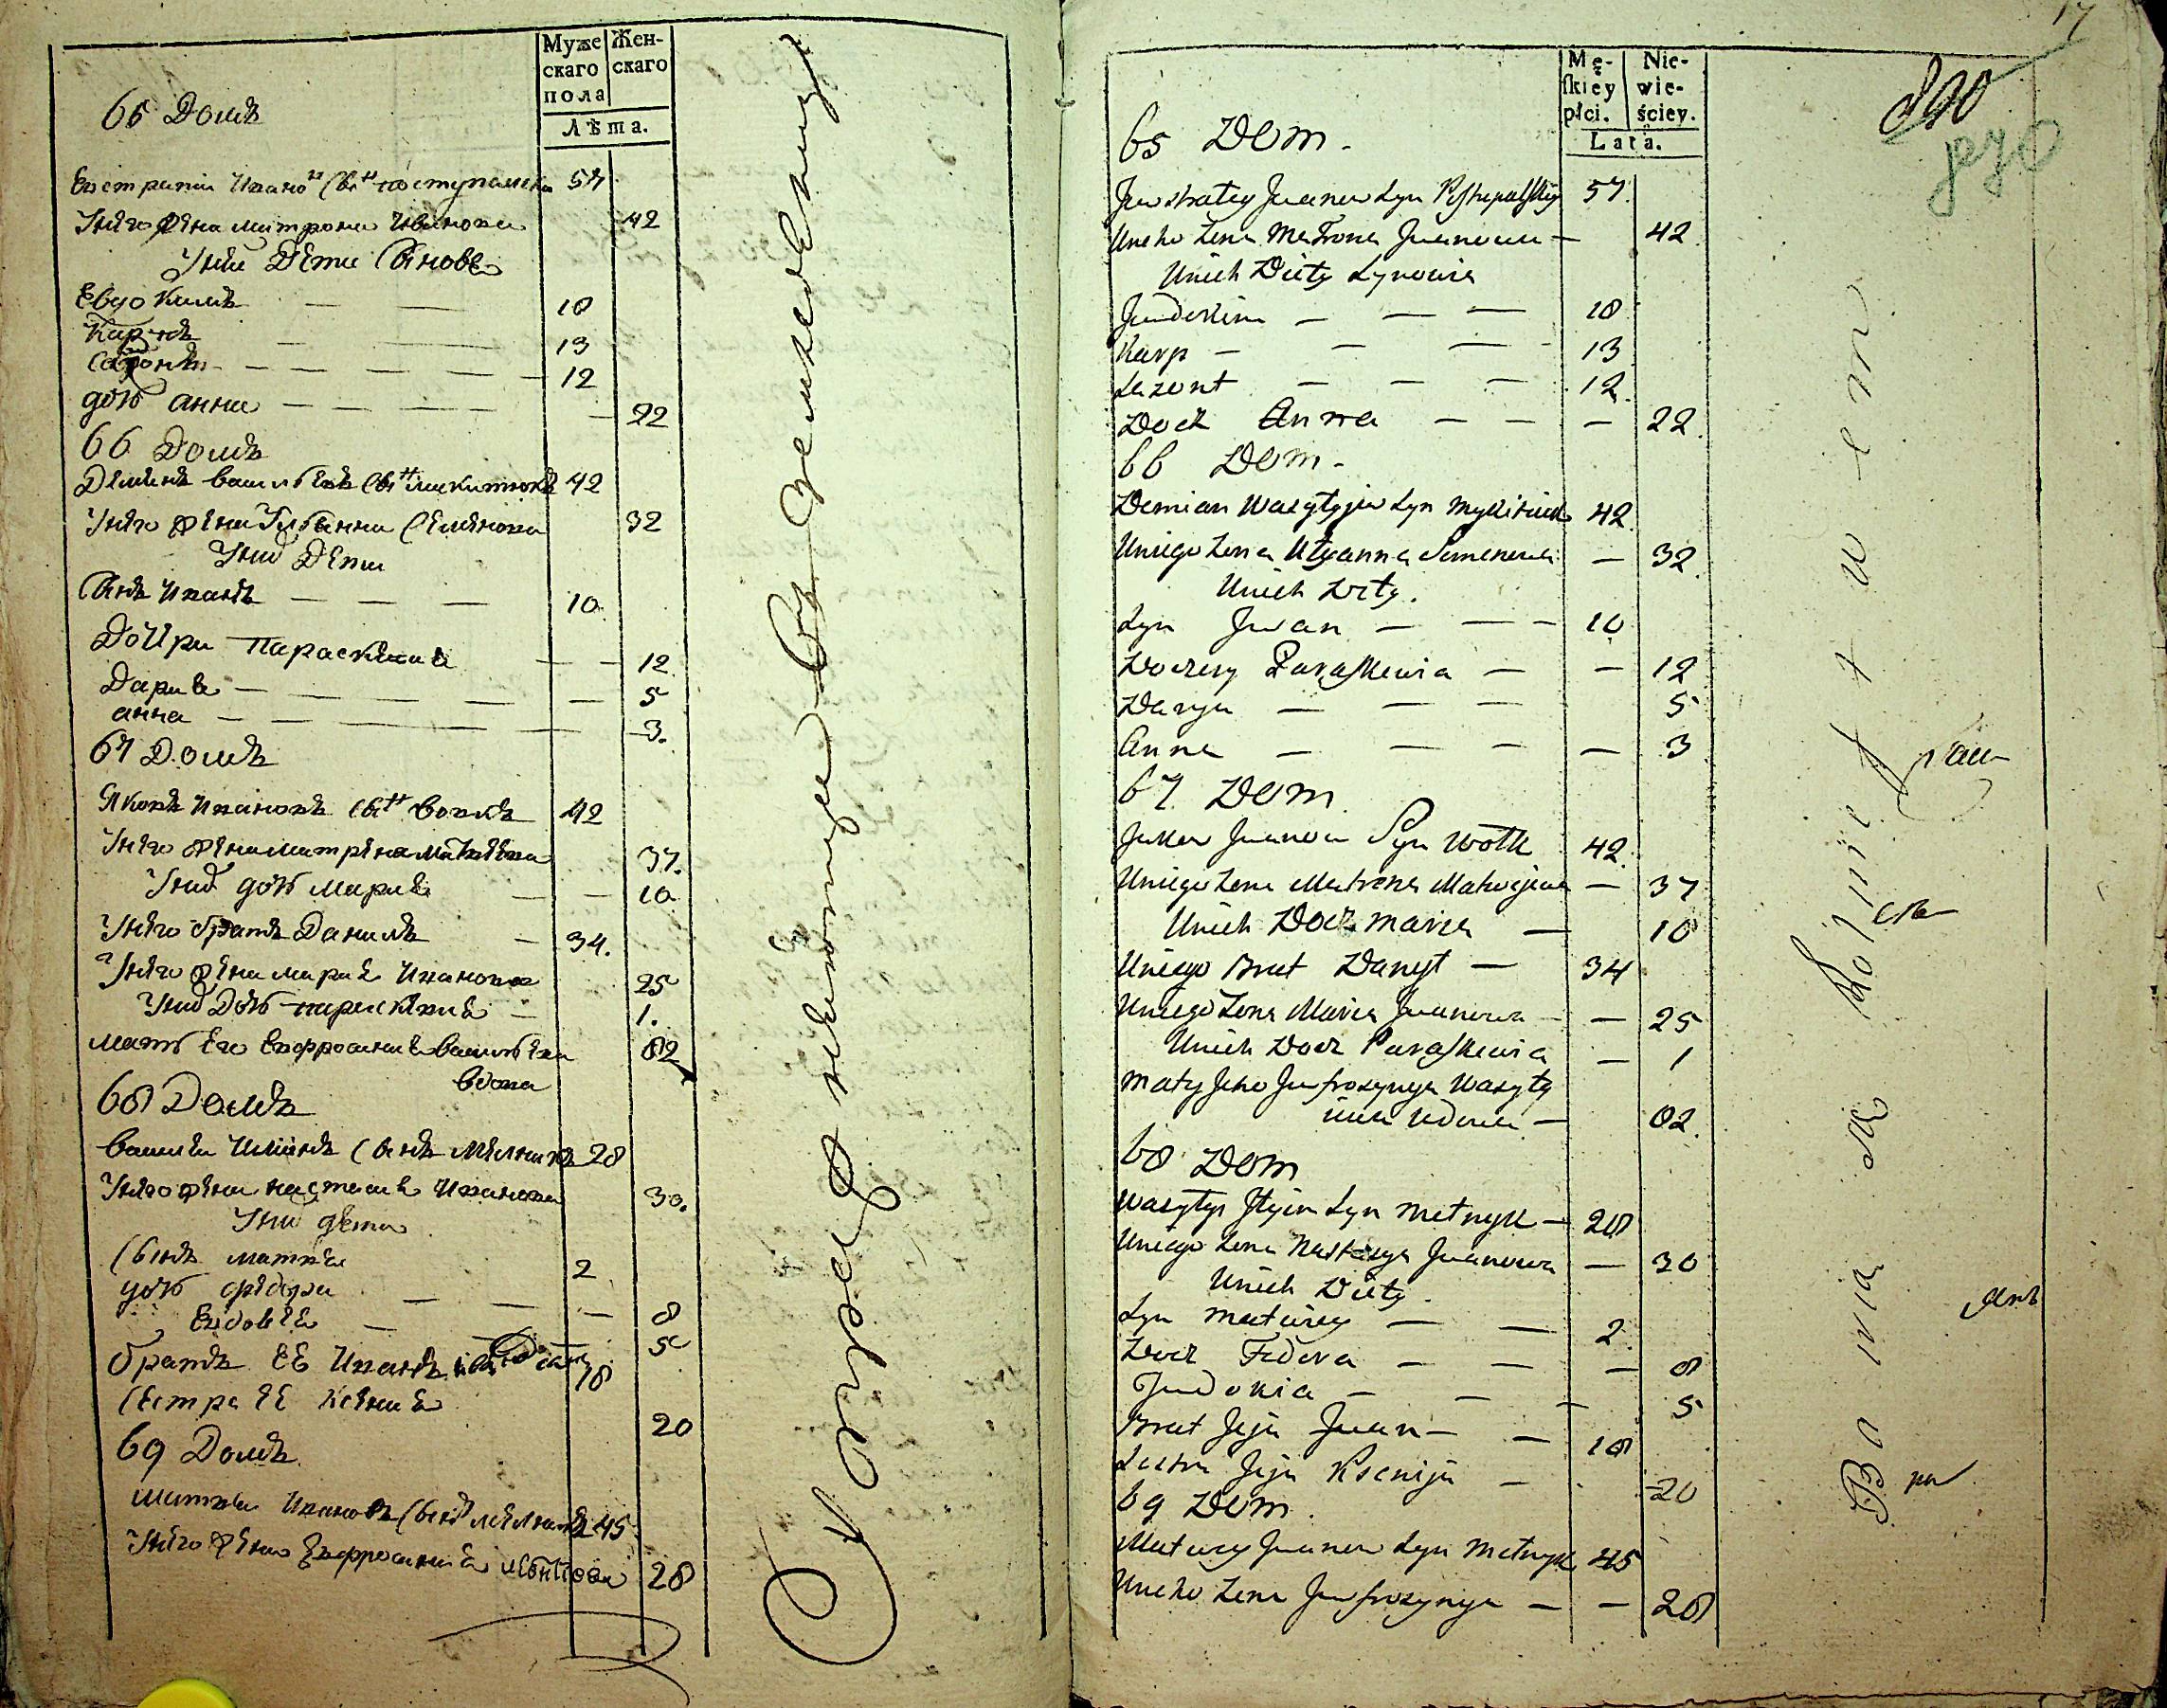 Муже скаго пола
Жен- скаго
Лѣта.
65 Домъ
Евстратій Ивано въ сынъ Поступалскій 57
У него жена Матрона Иванова 42
У них Дети Синове
Евдокимъ — — 18
Карпъ — — 13
Созонтъ — — — — — 12
дочь анна — — — — — 22
66 Домъ
Демянъ Василіевъ Сынъ Микитюкъ 42
У него жена Улианна Семенова 32
У них Дети
Синъ Иванъ — — — 10
Дочери Параскевия — — 12
Дария — — — — — — 5
анна — — — — — 3.
67 Домъ
Яковъ Ивановъ Сынъ Вовкъ 42
У него жена Матрена Матвеева 37.
У них дочь Мария — — 10
У него братъ Данилъ — 34.
У него жена Мария Иванова 25
У них Дочь Параскевия — 1.
Мать Его Евфросиния Василіева 82
вдова
68 Домъ
Василій Илиинъ Синъ Мелникъ 28
У него жена Настасия Иванова 30.
У них дети
Синъ Матвей 2
дочь Федора — — — 8
Евдокия — — 5
братъ ЕЯ Иванъ 18
Сестра ЕЯ Ксения 20
69 Домъ
Матвей Ивановъ Синъ Мелникъ 45
У него жена Евфросиния 28
Mę- skiey płci.
Nie- wie- ściey.
Lata.
17
820
65 Dom.
Juwstratey Juanow Syn Postupalskiy 57.
Uneho Zena Matrona Juanowa — 42
Unich Dity Synowia
Juwdokim — — — 18
Karp — — — 13
Sazont — — — 12
Docz Anna — — — 22.
66 Dom.
Demian Wasyłyjew Syn Mykitiuk 42
Uniego Zena Ulyanna Semenowa — 32
Unich Dity.
Syn Jwan — — — 10
Doczery Paraskewia — — 12
Darya — — — 5
Anna — — — — 3
67 Dom
Jakow Juanow Syn Wołk 42
Uniego Zena Matrona Matwijewa — 37
Unich Docz Maria — 10
Uniego Brat Danył — 34
Uniego Zena Maria Juanowa — — 25
Unich Docz Paraskewia — 1
Maty Jeho Juwfrosynya Wasyły
iwa Udowa — 82.
68 Dom
Wasylyi Jlyin Syn Melnyk — 28
Uniego Zena Nastasya Juanowa — 30
Unich Dity.
Syn Matwiey — — 2
Docz Fedora — — — 8
Juwdokia — — — 5
Brat Jeja Jwan — — 18
Sestra Jeja Ksenija — 20
69 Dom.
Matwey Juanow Syn Melnyk 45
Uneho Zena Juwfrosynya — — 28